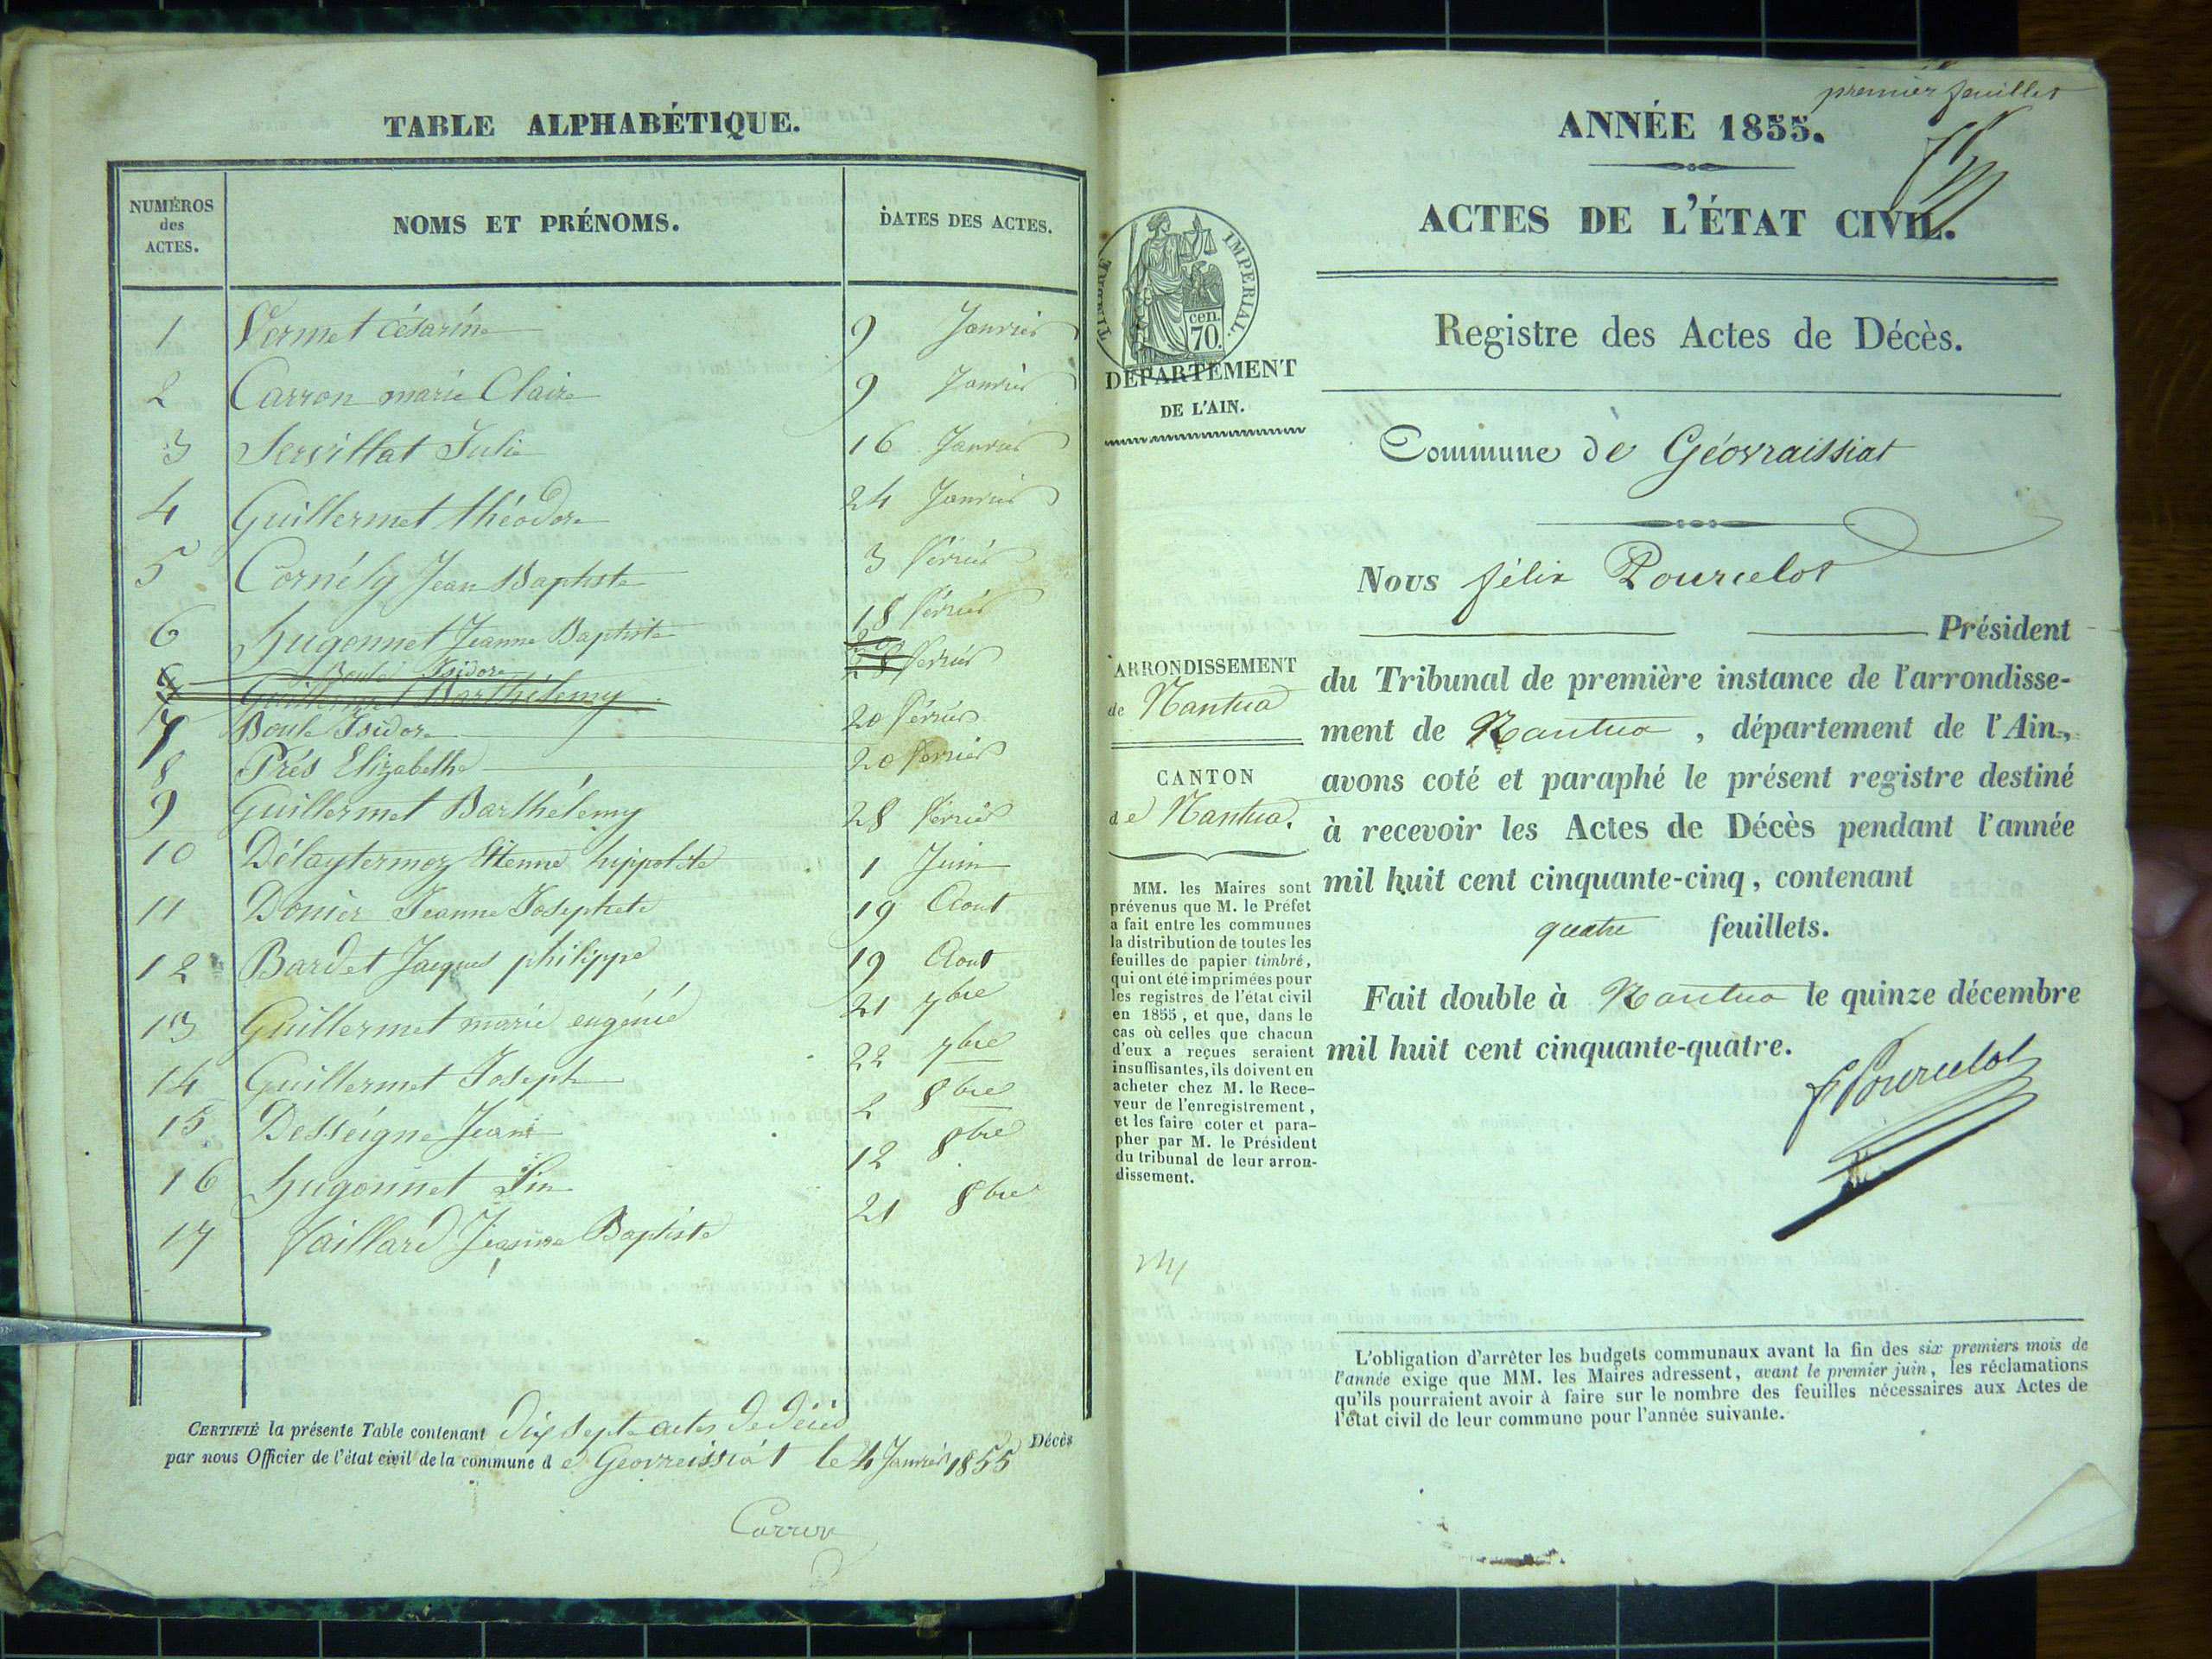 TABLE ALPHABÉTIQUE.
NUMÉROS des ACTES. NOMS ET PRÉNOMS. DATES DES ACTES.
1 Vermet Césarine 9 Janvier
2 Carron marie Claire 9 Janvier
3 Servillat Julie 16 Janvier
4 Guillermet théodore 24 Janvier
5 Cornély Jean Baptiste 3 février
6 hugonnet Jeanne Baptiste 18 février
Boule Isidore
Guillermet Barthélemy 28 février
7 Boule Isidore 20 février
8 Prés Elizabethe 20 février
9 Guillermet Barthélemy 28 février
10 Délaytermoz Etienne hippolite 1 Juin
11 Donier Jeanne Josephete 19 Aout
12 Bardet Jacques philippe 19 Aout
13 Guillermet marie eugénie 21 7bre
14 Guillermet Joseph 22 7bre
15 Desséigne Jean 2 8bre
16 hugonnet 12 8bre
17 Vaillard Jeanne Baptiste 21 8bre
CERTIFIÉ la présente Table contenant dix sept actes de décès Décès
par nous Officier de l'état civil de la commune de Géovreissiat le 4 Janvier 1855
Carron
premier feuillet
ANNÉE 1855.
ACTES DE L'ÉTAT CIVIL.
TIMBRE IMPERIAL.
cen.
70.
DÉPARTEMENT
DE L'AIN.
Registre des Actes de Décès.
Commune de Géovraissiat
ARRONDISSEMENT
de Nantua
CANTON
de Nantua.
MM. les Maires sont
prévenus que M. le Préfet
a fait entre les communes
la distribution de toutes les
feuilles de papier timbré,
qui ont été imprimées pour
les registres de l'état civil
en 1855, et que, dans le
cas où celles que chacun
d'eux a reçues seraient
insuffisantes, ils doivent en
acheter chez M. le Rece-
veur de l'enregistrement,
et les faire coter et para-
pher par M. le Président
du tribunal de leur arron-
dissement.
Nous félix Pourcelot
Président
du Tribunal de première instance de l'arrondisse-
ment de Nantua, département de l'Ain,
avons coté et paraphé le présent registre destiné
à recevoir les Actes de Décès pendant l'année
mil huit cent cinquante-cinq, contenant
quatre feuillets.
Fait double à Nantua le quinze décembre
mil huit cent cinquante-quatre.
f Pourcelot
L'obligation d'arrêter les budgets communaux avant la fin des six premiers mois de
l'année exige que MM. les Maires adressent, avant le premier juin, les réclamations
qu'ils pourraient avoir à faire sur le nombre des feuilles nécessaires aux Actes de
l'état civil de leur commune pour l'année suivante.